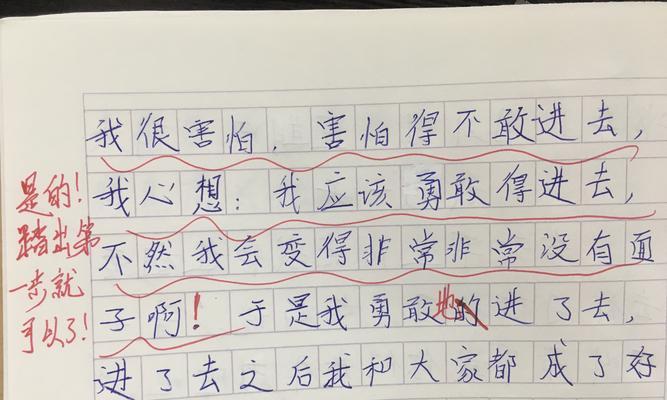 我很害怕，害怕得不敢进去，
我心想：我应该勇敢得进去，
不然我会变得非常非常没有面
子啊！于是我勇敢地的进了去，
进了去之后我和大家都成了好
是的！
踏出第
一步就
可以了！